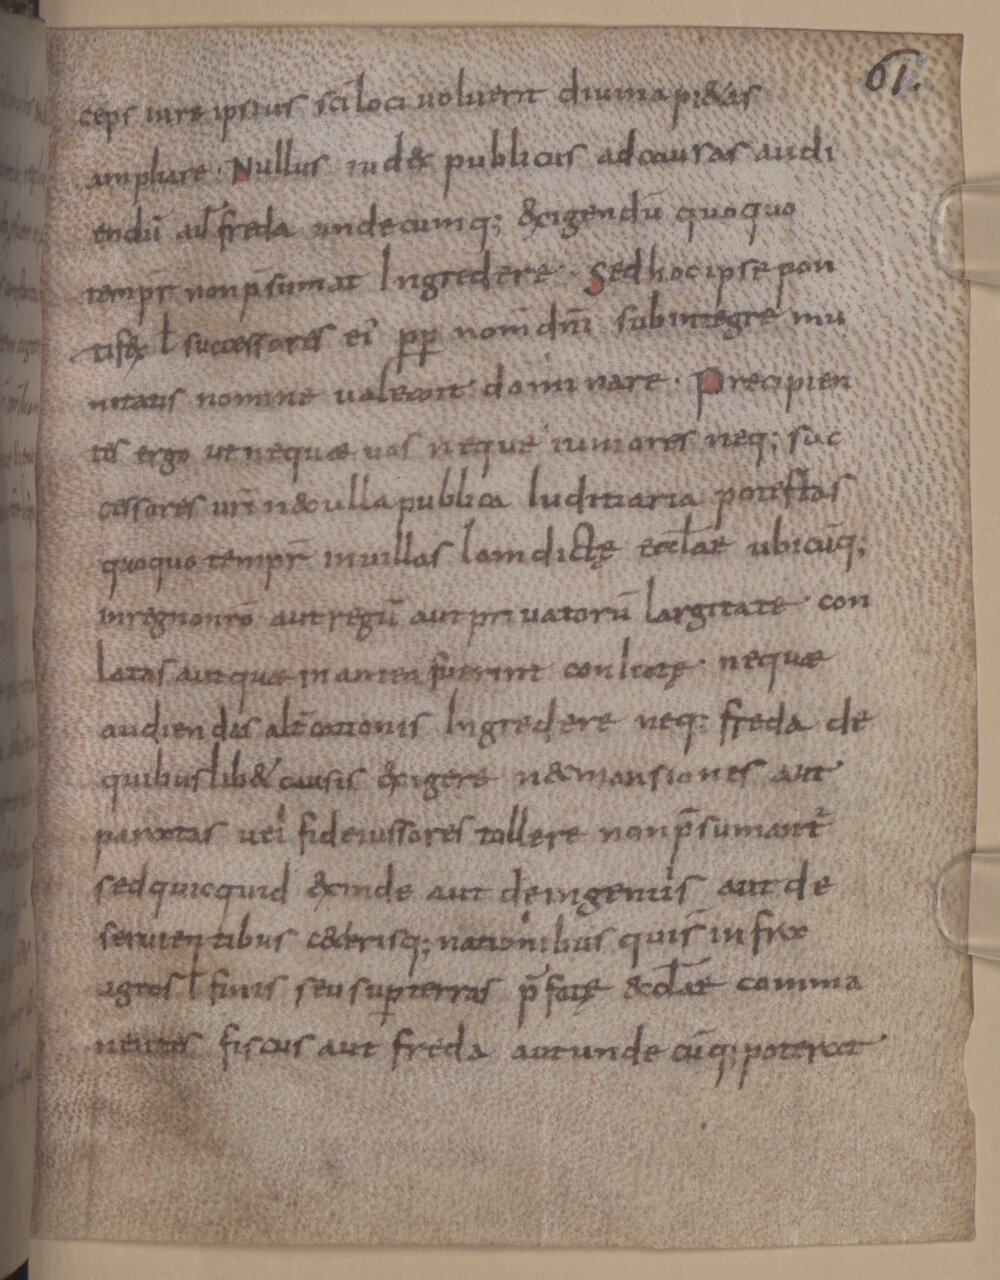 61.
ceps iure ipsius sc̄i loci voluerit divina pi&as
ampliare · Nullus iudex publicus ad causas audi
endū aut freda undecumq; exigendū quoquo
tempr̄ non p̄sumat Ingredere · Sed hoc ipse pon
tifex ł successores eī pp̄ nom̄ dnī sub integre mu
nitatis nomine valeant dominare · Precipien
tes ergo ut nequae vos neque iuniores neq; suc
cessores vr̄i n&ulla publica Iuditiaria potestas
quoquo tempr̄ in villas Iam dictę eccl̄ae ubicūq;
in regno nr̄o aut regū aut privatorū largitate con
latas aut quae in antea fuerint conlatę nequae
audiendis alt̄cationis Ingredere neq; freda de
quibuslib& causis exigere n& mansiones aut
paratas vel fideiussores tollere non p̄sumant
sed quicquid exinde aut de ingenuis aut de
servientibus c&erisq; nationibus qui s̄ infra
agros ł finis seu sup terras p̄fatę eccl̄ae comma
nentes fiscus aut freda aut undecūq; poterat